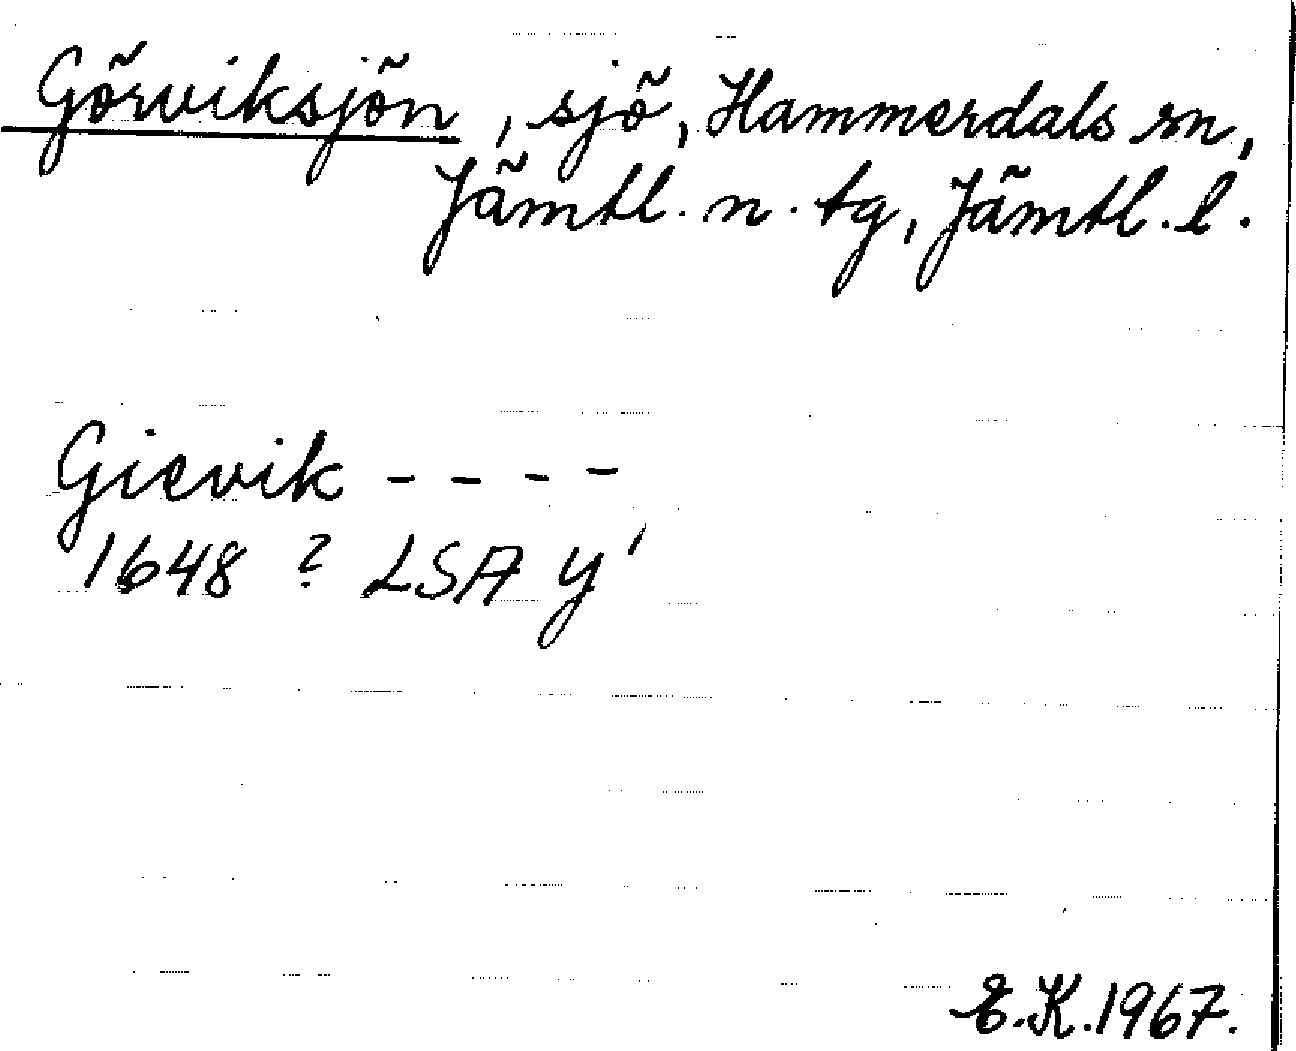 Görviksjön, sjö, Hammerdals sn,
Jämtl. n. tg, Jämtl. l.
Gievik - - - -
1648 ? LSA y'
E.K. 1967.